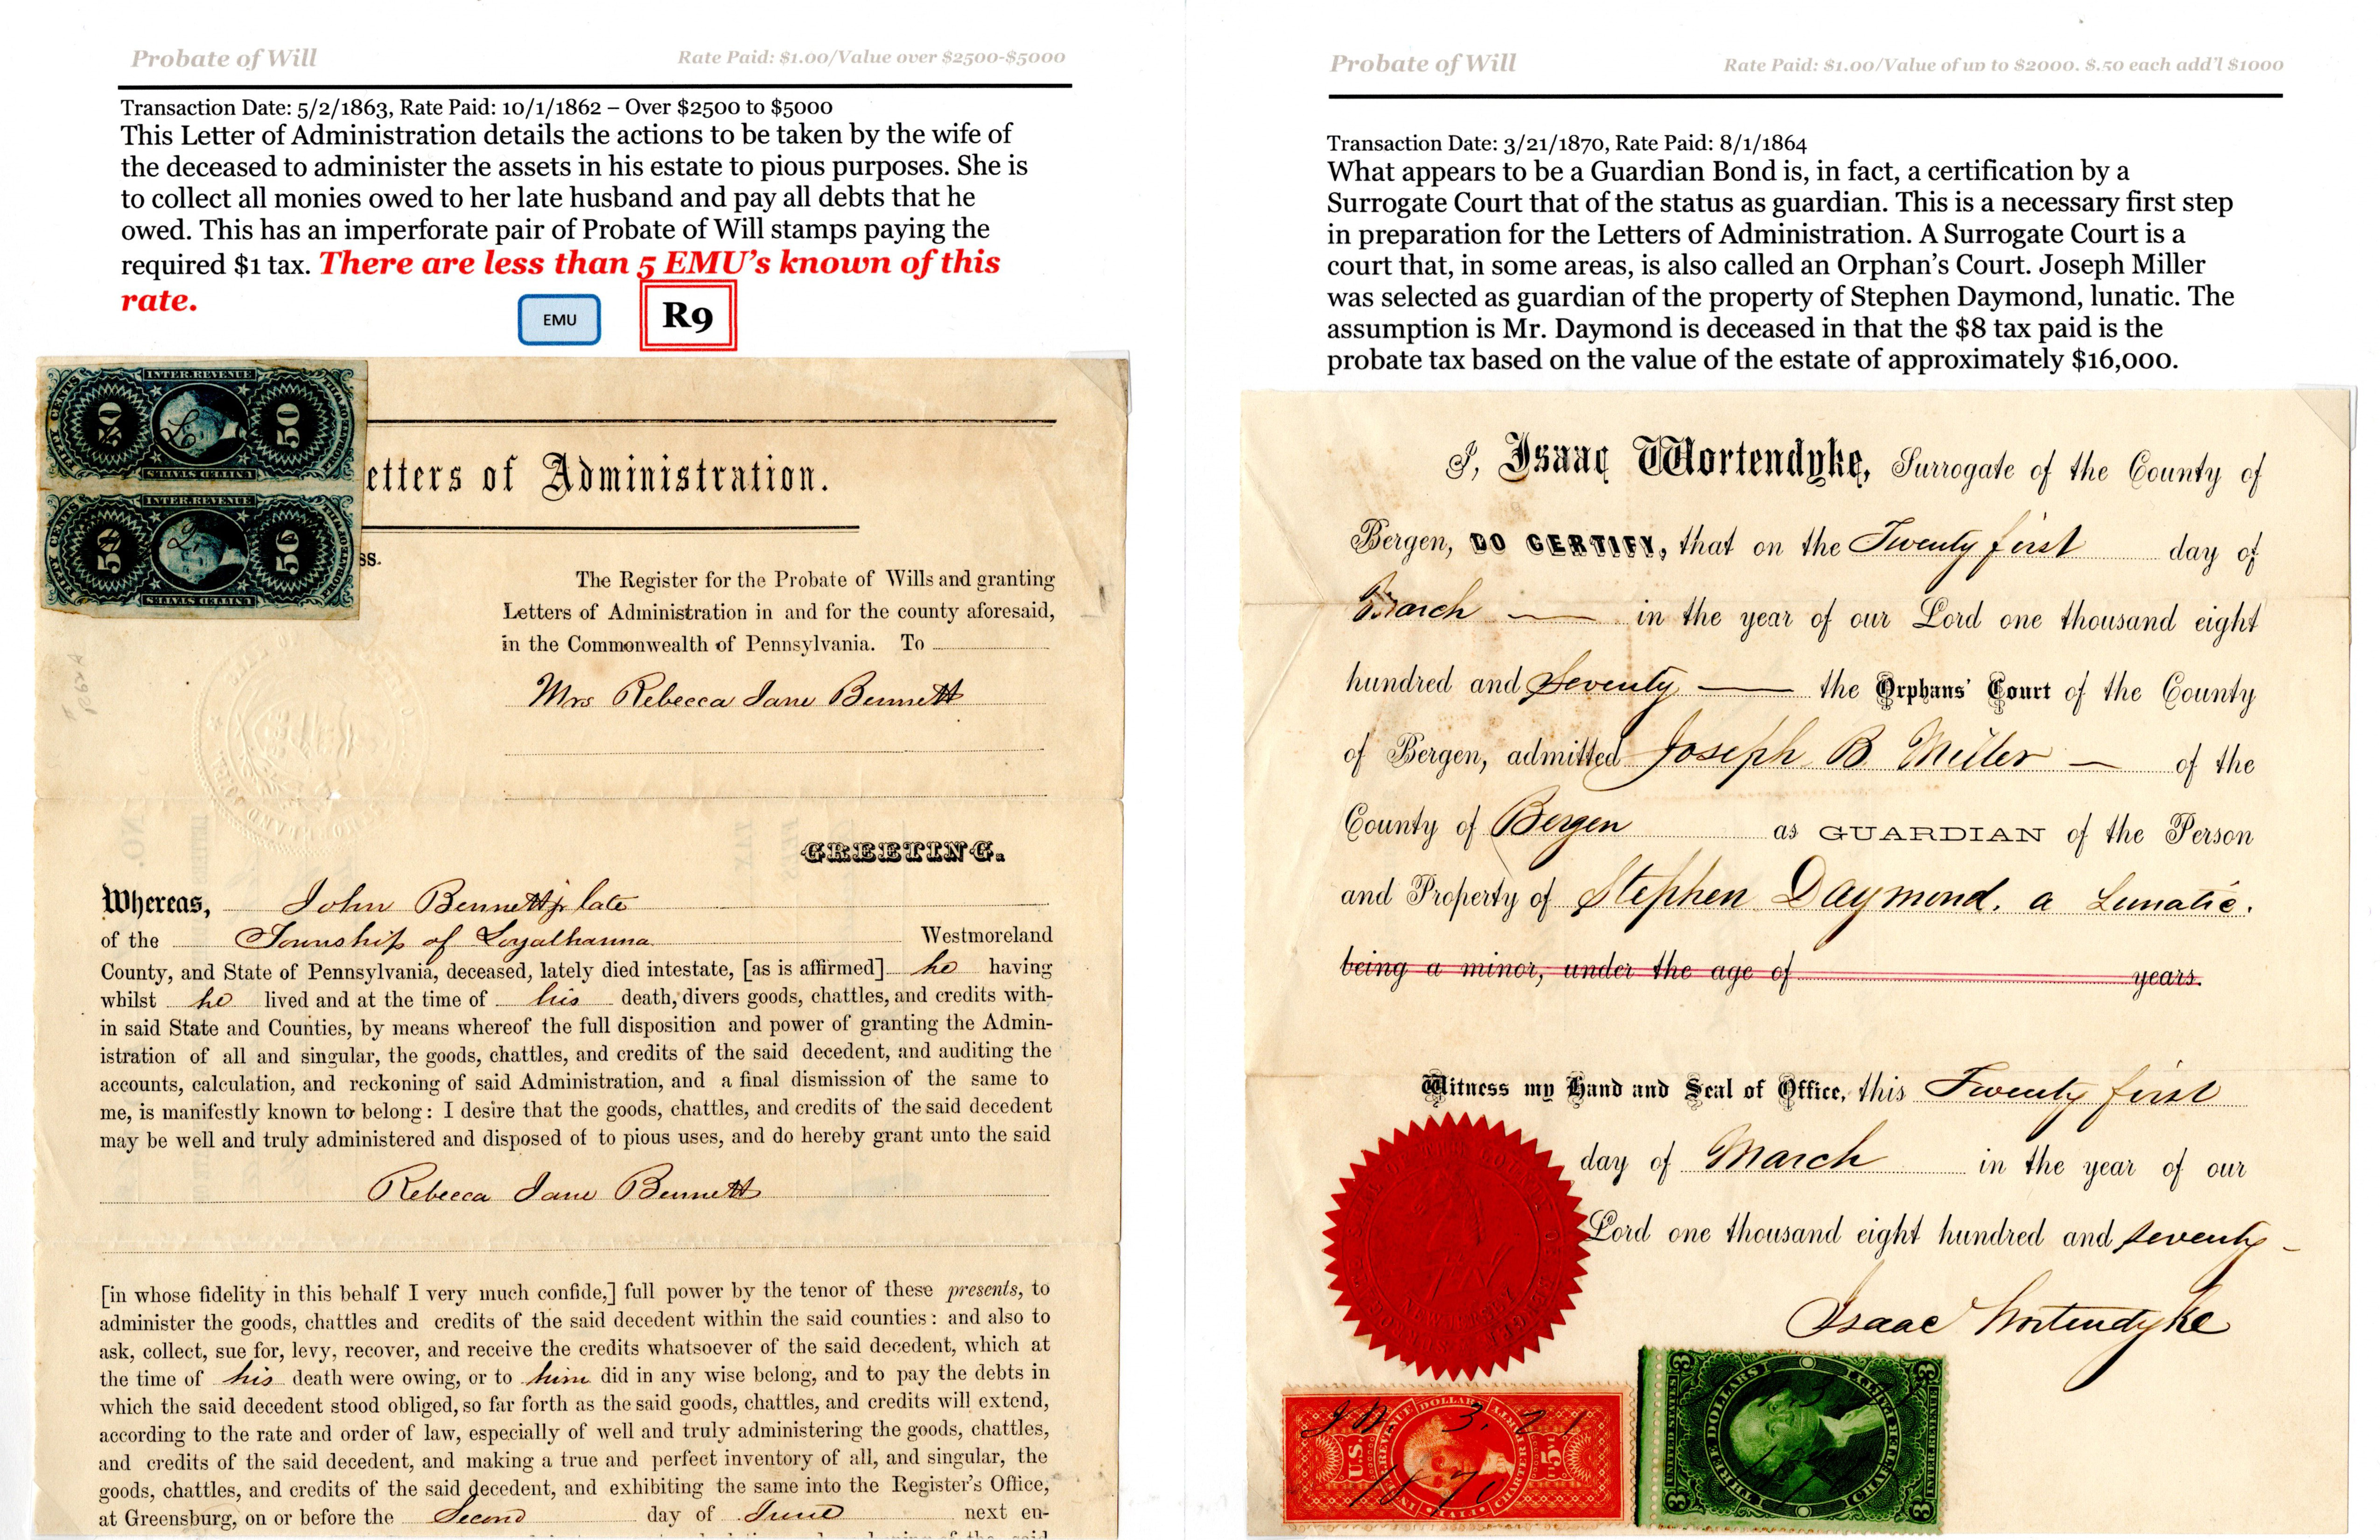 Probate of Will
Rate Paid: $1.00/Value over $2500-$5000
Transaction Date: 5/2/1863, Rate Paid: 10/1/1862 – Over $2500 to $5000
This Letter of Administration details the actions to be taken by the wife of
the deceased to administer the assets in his estate to pious purposes. She is
to collect all monies owed to her late husband and pay all debts that he
owed. This has an imperforate pair of Probate of Will stamps paying the
required $1 tax. There are less than 5 EMU's known of this
rate.
EMU
R9
INTER. REVENUE
FIFTY CENTS
50
50
PROBATE OF WILL
UNITED STATES
INTER. REVENUE
FIFTY CENTS
50
50
PROBATE OF WILL
UNITED STATES
etters of Administration.
ss.
The Register for the Probate of Wills and granting
Letters of Administration in and for the county aforesaid,
in the Commonwealth of Pennsylvania. To
Mrs Rebecca Jane Bennett
GREETING.
Whereas, John Bennett late
of the Township of Loyalhanna Westmoreland
County, and State of Pennsylvania, deceased, lately died intestate, [as is affirmed] he having
whilst he lived and at the time of his death, divers goods, chattles, and credits with-
in said State and Counties, by means whereof the full disposition and power of granting the Admin-
istration of all and singular, the goods, chattles, and credits of the said decedent, and auditing the
accounts, calculation, and reckoning of said Administration, and a final dismission of the same to
me, is manifestly known to belong: I desire that the goods, chattles, and credits of the said decedent
may be well and truly administered and disposed of to pious uses, and do hereby grant unto the said
Rebecca Jane Bennett
[in whose fidelity in this behalf I very much confide,] full power by the tenor of these presents, to
administer the goods, chattles and credits of the said decedent within the said counties: and also to
ask, collect, sue for, levy, recover, and receive the credits whatsoever of the said decedent, which at
the time of his death were owing, or to him did in any wise belong, and to pay the debts in
which the said decedent stood obliged, so far forth as the said goods, chattles, and credits will extend,
according to the rate and order of law, especially of well and truly administering the goods, chattles,
and credits of the said decedent, and making a true and perfect inventory of all, and singular, the
goods, chattles, and credits of the said decedent, and exhibiting the same into the Register's Office,
at Greensburg, on or before the Second day of June next en-
Probate of Will
Rate Paid: $1.00/Value of up to $2000. $.50 each add'l $1000
Transaction Date: 3/21/1870, Rate Paid: 8/1/1864
What appears to be a Guardian Bond is, in fact, a certification by a
Surrogate Court that of the status as guardian. This is a necessary first step
in preparation for the Letters of Administration. A Surrogate Court is a
court that, in some areas, is also called an Orphan's Court. Joseph Miller
was selected as guardian of the property of Stephen Daymond, lunatic. The
assumption is Mr. Daymond is deceased in that the $8 tax paid is the
probate tax based on the value of the estate of approximately $16,000.
I, Isaac Wortendyke, Surrogate of the County of
Bergen, DO CERTIFY, that on the Twenty first day of
March in the year of our Lord one thousand eight
hundred and Seventy the Orphans' Court of the County
of Bergen, admitted Joseph B. Miller of the
County of Bergen as GUARDIAN of the Person
and Property of Stephen Daymond. a Lunatic.
being a minor, under the age of years.
Witness my Hand and Seal of Office, this Twenty first
day of March in the year of our
Lord one thousand eight hundred and seventy
Isaac Wortendyke
NEW JERSEY
U.S. INT. REVENUE
FIVE DOLLARS
CHARTER PARTY
3. 21
1870
UNITED STATES
THREE DOLLARS
CHARTER PARTY
INTER. REVENUE
3
3
3
3